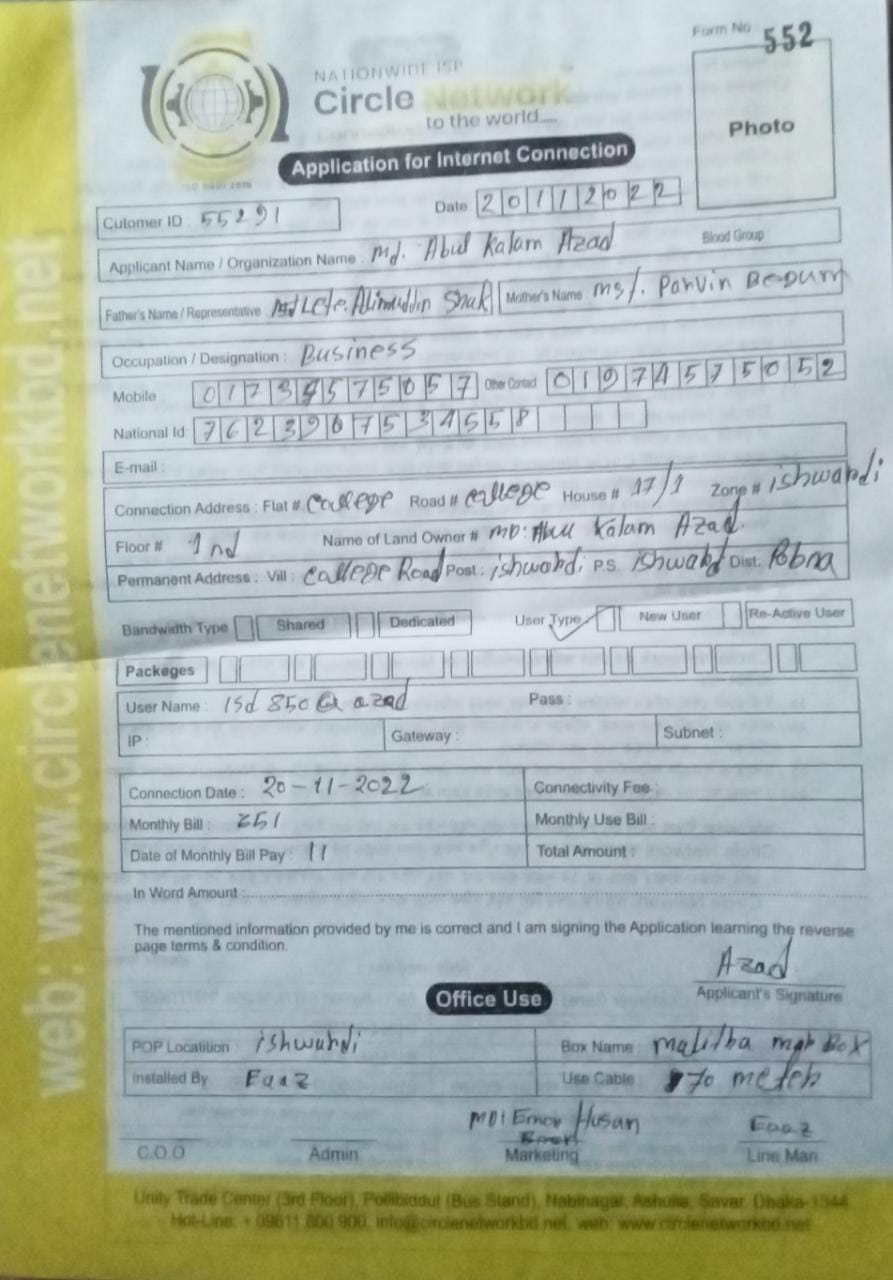 Form No 552
NATIONWIDE ISP
Circle Network
to the world....
Photo
Application for Internet Connection
ISO 9001:2015
Cutomer ID : 55291 Date 20112022
Applicant Name / Organization Name : Md. Abul Kalam Azad Blood Group
Father's Name / Representative Late. Alimuddin Shak Mother's Name Ms/. Parvin Begum
Occupation / Designation : Business
Mobile 01734575057 Other Contact 01974575052
National Id 7623967534558
E-mail :
Connection Address : Flat # College Road # College House # 17/1 Zone # ishwardi
Floor # 1nd Name of Land Owner # MD: Abul Kalam Azad.
Permanent Address : Vill : College Road Post : ishwardi P.S. ishwardi Dist. Pabna
Bandwidth Type Shared Dedicated User Type New User Re-Active User
Packeges
User Name : isd 850 @ azad Pass :
IP : Gateway : Subnet :
Connection Date : 20-11-2022 Connectivity Fee :
Monthly Bill : 351 Monthly Use Bill :
Date of Monthly Bill Pay : 11 Total Amount :
In Word Amount :
The mentioned information provided by me is correct and I am signing the Application learning the reverse
page terms & condition.
Azad
Applicant's Signature
Office Use
POP Locatition ishwardi Box Name malitha Box
Installed By Eaaz Use Cable 70 meter
MD: Emon Husan Eaaz
C.O.O Admin Marketing Line Man
Unity Trade Center (3rd Floor), Pollibiddut (Bus Stand), Nabinagar, Ashulia, Savar, Dhaka-1344
Hot-Line: + 09611 800 900, info@circlenetworkbd.net, web: www.circlenetworkbd.net
web: www.circlenetworkbd.net